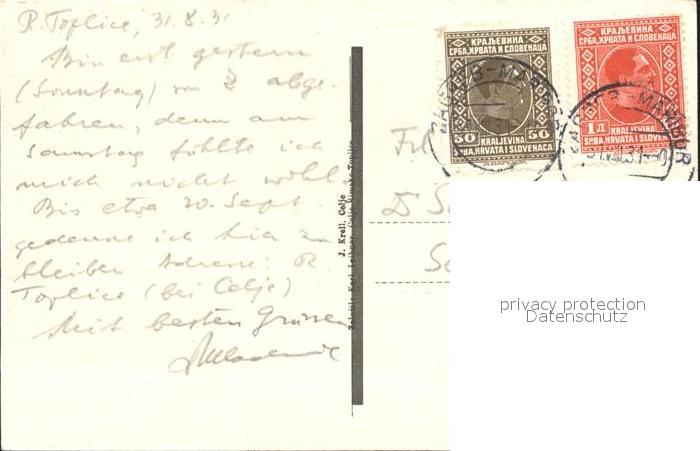 R. Toplice, 31.8.31
Bin erst gestern
(Sonntag) von Z abge-
fahren, denn am
Samstag fühlte ich
mich nicht wohl.
Bis etwa 20. Sept.
gedenke ich hier zu
bleiben Adresse: R.
Toplice (bei Celje)
Mit besten Grüssen
J. Krell, Celje
КРАЉЕВИНА
СРБА, ХРВАТА И СЛОВЕНАЦА
50 50
KRALJEVINA
SRBA, HRVATA I SLOVENACA
КРАЉЕВИНА
СРБА, ХРВАТА И СЛОВЕНАЦА
1 Д
KRALJEVINA
SRBA, HRVATA I SLOVENACA
ZAGREB-MARIBOR
ZAGREB-MARIBOR
Frl
D
privacy protection
Datenschutz